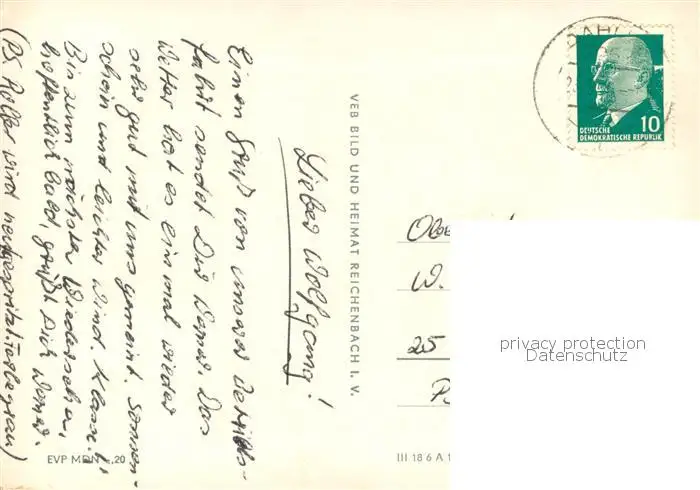 Lieber Wolfgang!
Einen Gruß von unserer Betriebs-
fahrt sendet Dir Werner. Das
Wetter hat es einmal wieder
sehr gut mit uns gemeint. Sonnen-
schein und leichter Wind. Klasse!
Bis zum nächsten Wiedersehen,
hoffentlich bald, grüßt Dich Werner.
(PS. Roller wird neugespritzt.
VEB BILD UND HEIMAT REICHENBACH I. V.
EVP MDN -,20
III 18 6 A 1
10
DEUTSCHE
DEMOKRATISCHE REPUBLIK
W.
25
privacy protection
Datenschutz